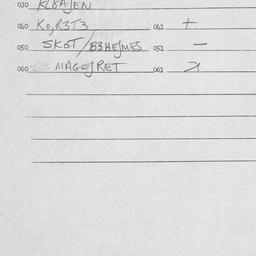 030 KL8AJEN
040 Ko,R3T3 041 +
050 SKOT/B3HEJMES 051 —
060 MAGEJRET 061